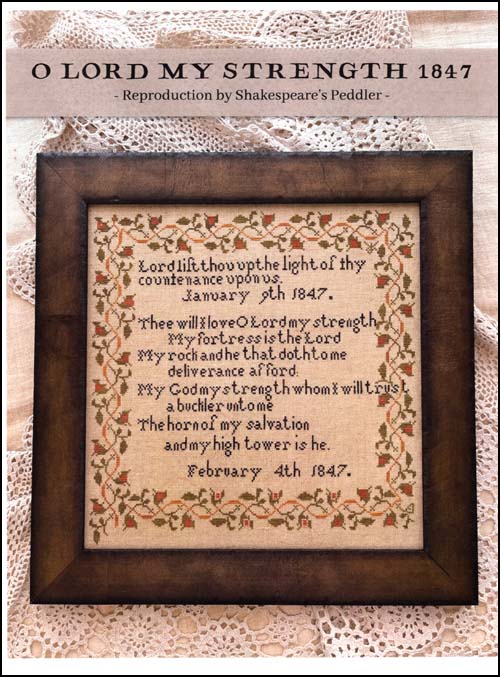 O LORD MY STRENGTH 1847
- Reproduction by Shakespeare's Peddler -
Lord lift thou up the light of thy
countenance upon us.
January 9th 1847.
Thee will I love O Lord my strength
My fortress is the Lord
My rock and he that doth to me
deliverance afford.
My God my strength whom I will trust
a buckler unto me
The horn of my salvation
and my high tower is he.
February 4th 1847.